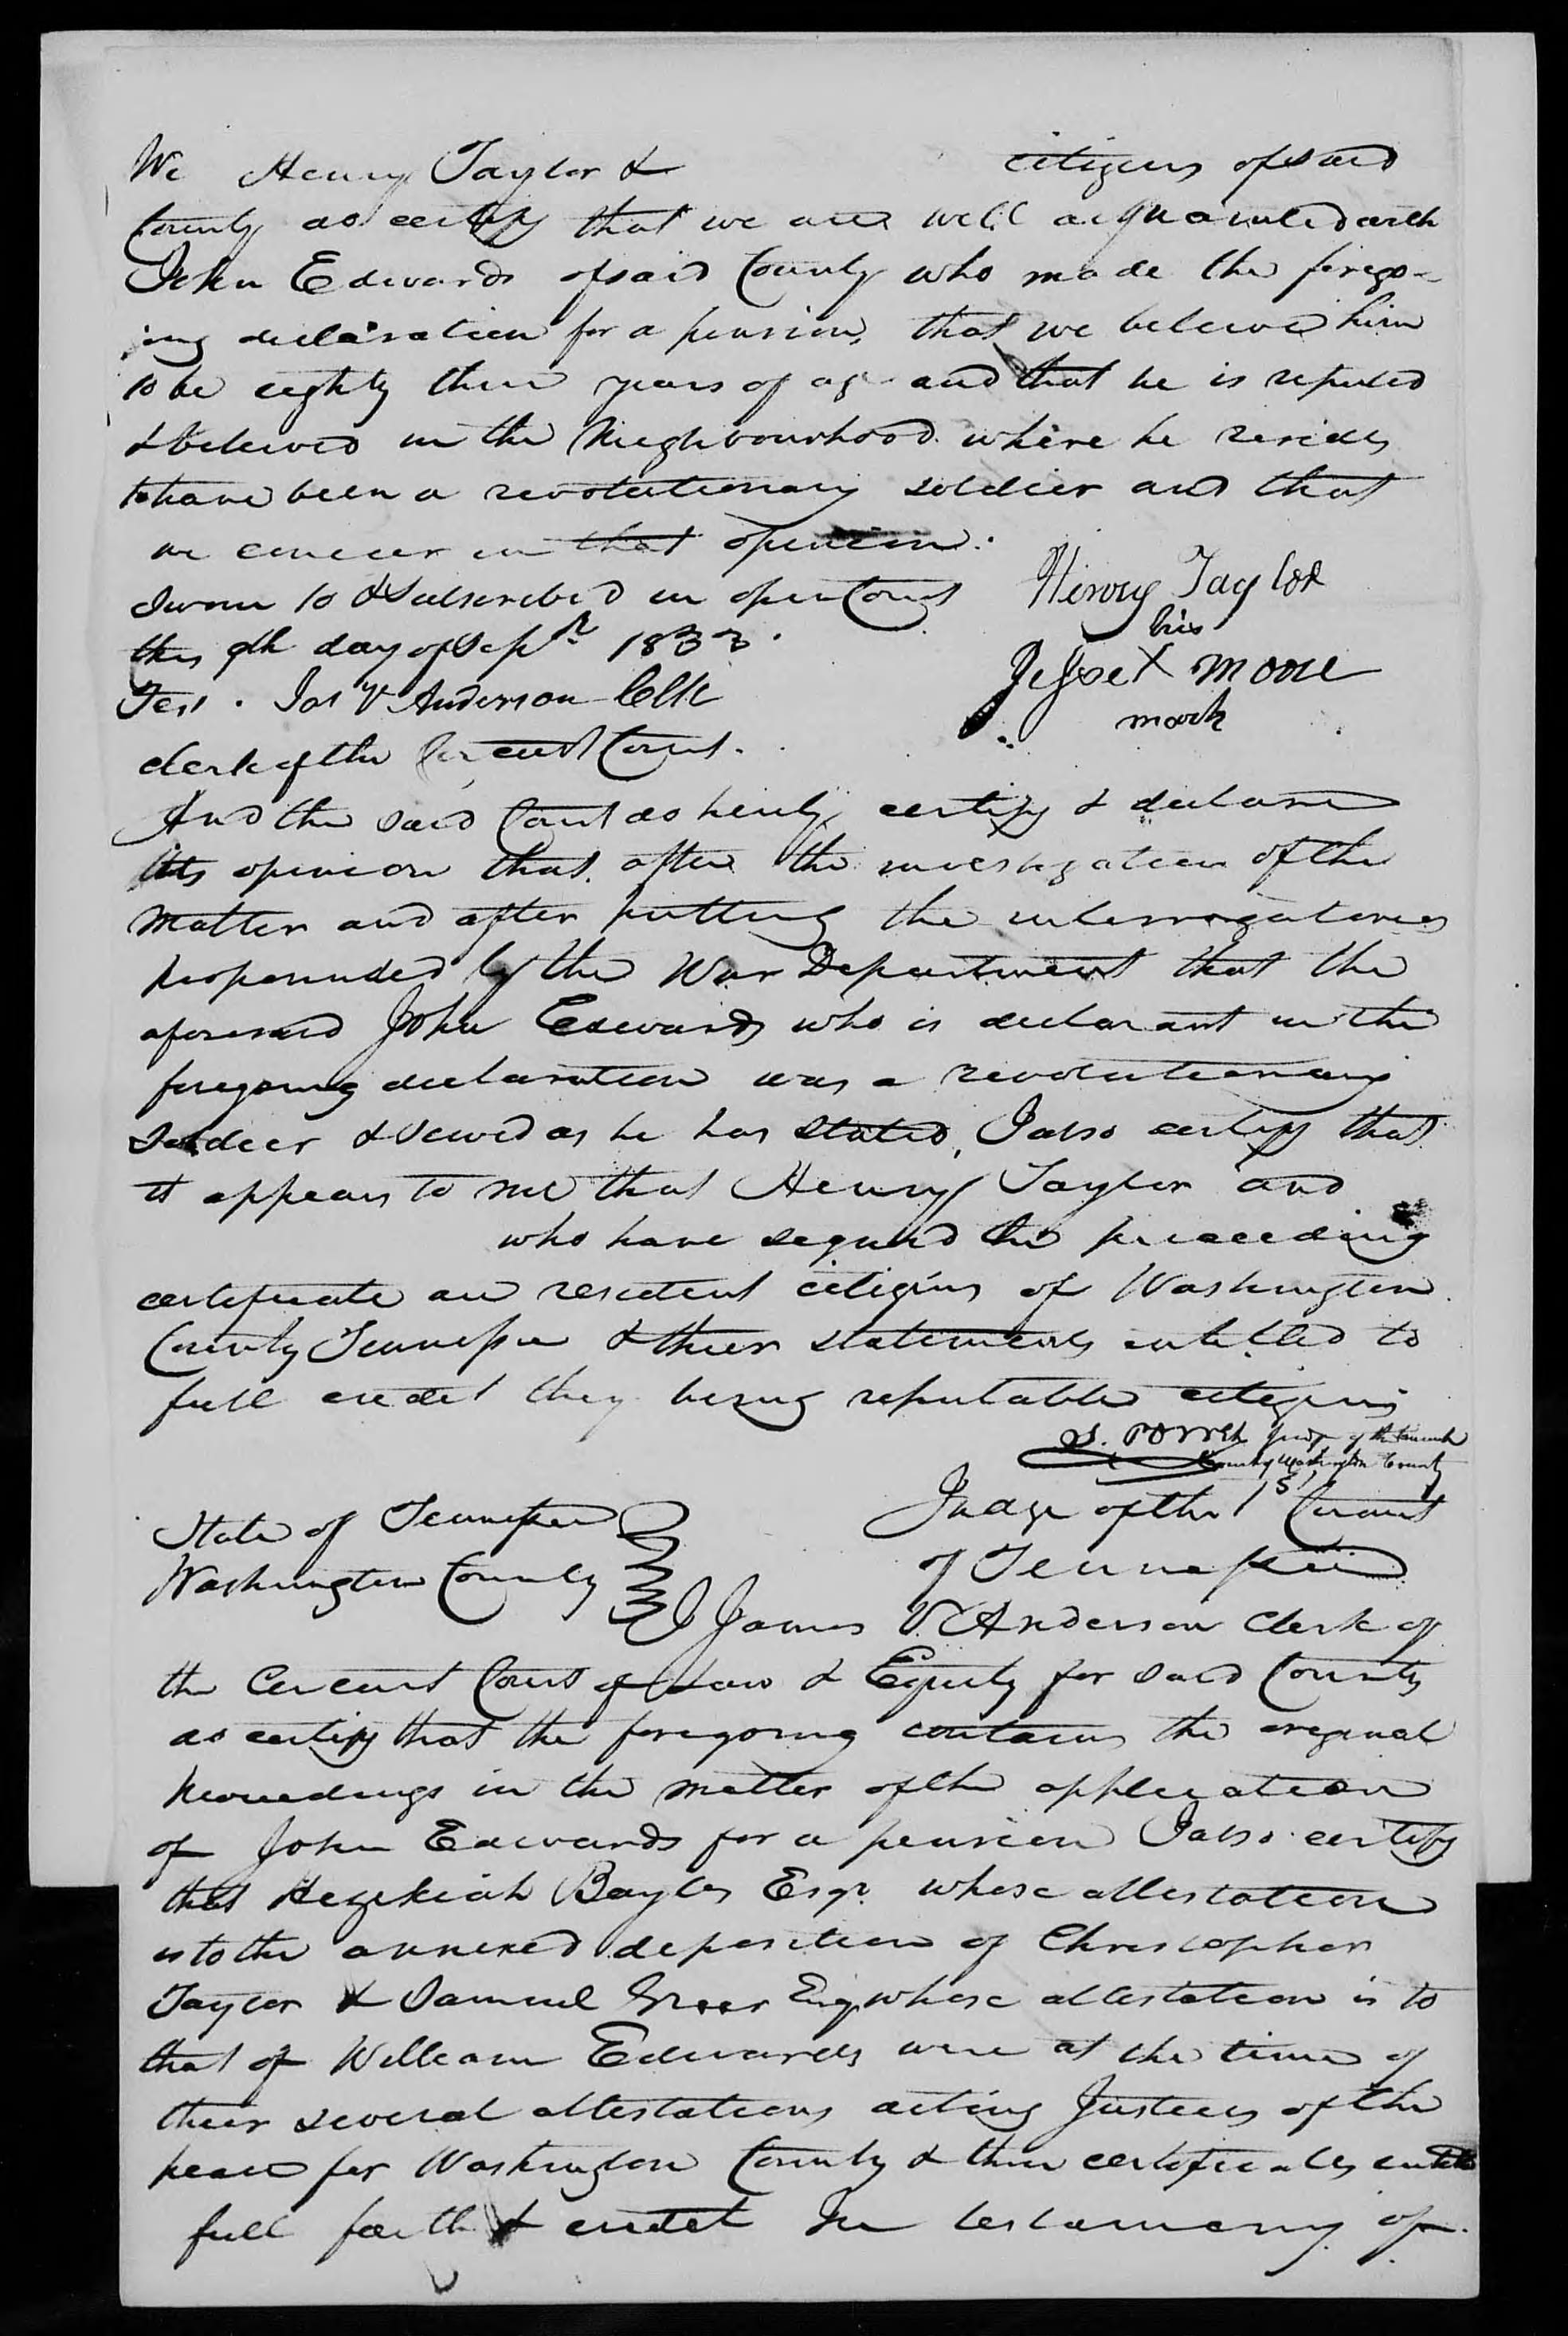 We Henry Taylor & citizens of said
County do certify that we are well acquainted with
John Edwards of said County who made the forego-
ing declaration for a pension, that we beleive him
to be eighty three years of age and that he is reputed
& beleived in the Neighbourhood where he resides
to have been a revolutionary soldier and that
we concur in that opinion.
Sworn to & Subscribed in open Court Henry Taylor
this 9th day of Sepr 1833. his
Test. Jas V Anderson Clk Jesse X Moore
mark
clerk of the Circuit Court.
And the said Court do hereby certify & declare
its opinion that after the investigation of the
Matter and after putting the interrogatories
propounded by the War Department that the
aforesaid John Edwards who is declarant in the
foregoing declaration was a revolutionary
Soldier & served as he has stated, I also certify that
it appears to me that Henry Taylor and
who have signed the preceeding
certificate are resident citizens of Washington
County Tennessee & their statements entitled to
full credit they being reputable citizens
S. Powel Judge of the
County Washington County
Judge of the 1st Circuit
State of Tennessee
of Tennessee
Washington County
I James V. Anderson Clerk of
the Circuit Court of Law & Equity for said County
do certify that the foregoing contains the original
proceedings in the matter of the application
of John Edwards for a pension I also certify
that Hezekiah Bayles Esqr. whose attestation
is to the annexed deposition of Christopher
Taylor & Samuel Greer Esq whose attestation is to
that of William Edwards were at the time of
their several attestations acting Justices of the
peace for Washington County & their certificates entitled
full faith & credit In testamony of